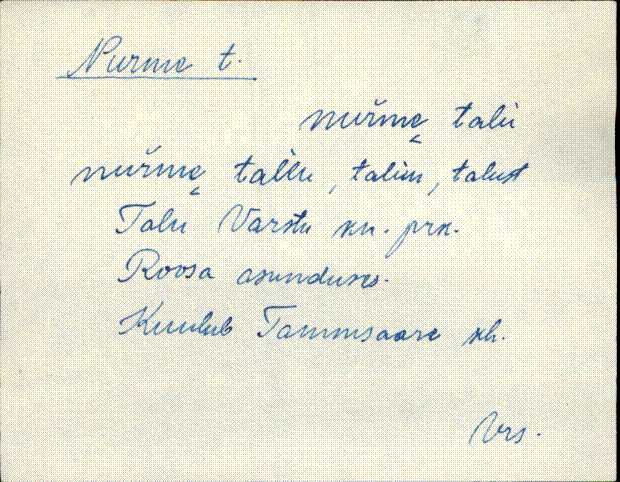 Nurme t.
nuŕmȩ talu
nuŕmȩ tallu, talun, talust
Talu Varstu kn. prk.
Roosa asunduses.
Kuulub Tammsaare kh.
Vrs.